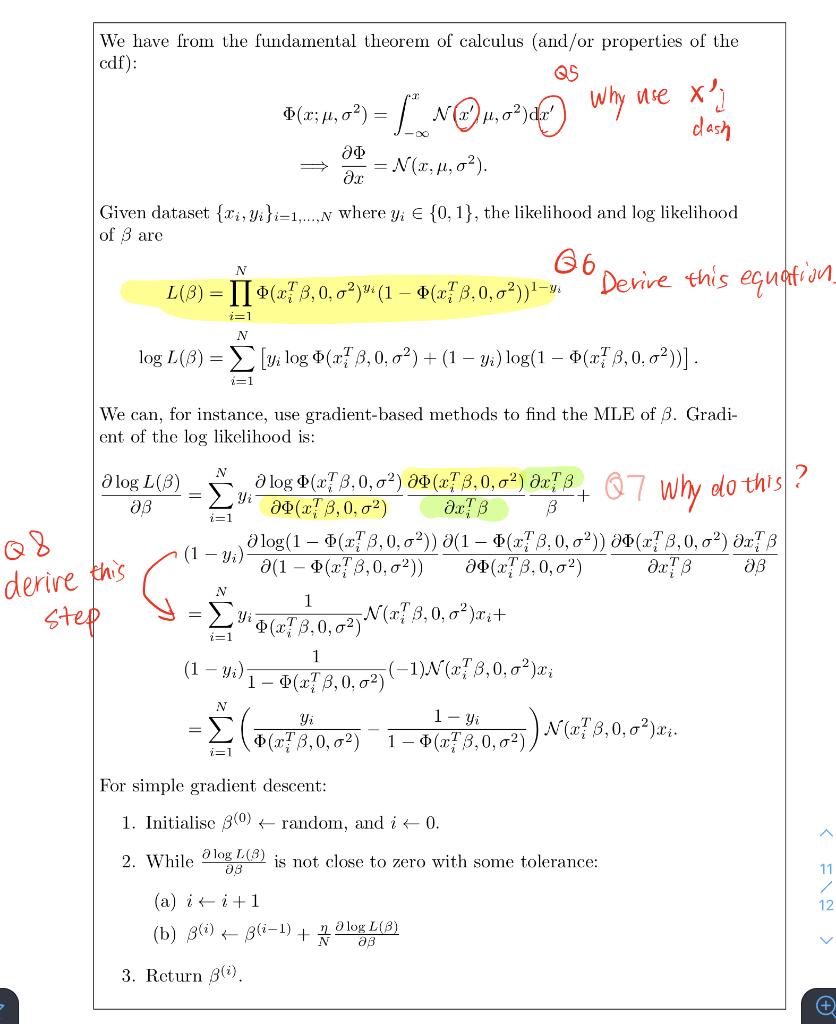 We have from the fundamental theorem of calculus (and/or properties of the
cdf):
Q5
Why use x'
dash
Φ(x; μ, σ²) = ∫_{−∞}^{x} 𝒩(x', μ, σ²)dx'
⟹ ∂Φ/∂x = 𝒩(x, μ, σ²).
Given dataset {x_i, y_i}_{i=1,...,N} where y_i ∈ {0, 1}, the likelihood and log likelihood
of β are
Q6 Derive this equation.
L(β) = ∏_{i=1}^{N} Φ(x_i^T β, 0, σ²)^{y_i} (1 − Φ(x_i^T β, 0, σ²))^{1−y_i}
log L(β) = ∑_{i=1}^{N} [y_i log Φ(x_i^T β, 0, σ²) + (1 − y_i) log(1 − Φ(x_i^T β, 0, σ²))] .
We can, for instance, use gradient-based methods to find the MLE of β. Gradi-
ent of the log likelihood is:
∂ log L(β)/∂β = ∑_{i=1}^{N} y_i ∂ log Φ(x_i^T β, 0, σ²)/∂Φ(x_i^T β, 0, σ²) ∂Φ(x_i^T β, 0, σ²)/∂x_i^T β ∂x_i^T β/β +
Q7 Why do this ?
(1 − y_i) ∂ log(1 − Φ(x_i^T β, 0, σ²))/∂(1 − Φ(x_i^T β, 0, σ²)) ∂(1 − Φ(x_i^T β, 0, σ²))/∂Φ(x_i^T β, 0, σ²) ∂Φ(x_i^T β, 0, σ²)/∂x_i^T β ∂x_i^T β/∂β
Q8
derive this
step
= ∑_{i=1}^{N} y_i 1/Φ(x_i^T β, 0, σ²) 𝒩(x_i^T β, 0, σ²)x_i +
(1 − y_i) 1/(1 − Φ(x_i^T β, 0, σ²)) (−1)𝒩(x_i^T β, 0, σ²)x_i
= ∑_{i=1}^{N} ( y_i/Φ(x_i^T β, 0, σ²) − (1 − y_i)/(1 − Φ(x_i^T β, 0, σ²)) ) 𝒩(x_i^T β, 0, σ²)x_i.
For simple gradient descent:
1. Initialise β^{(0)} ← random, and i ← 0.
2. While ∂ log L(β)/∂β is not close to zero with some tolerance:
(a) i ← i + 1
(b) β^{(i)} ← β^{(i−1)} + η/N ∂ log L(β)/∂β
3. Return β^{(i)}.
11
/
12